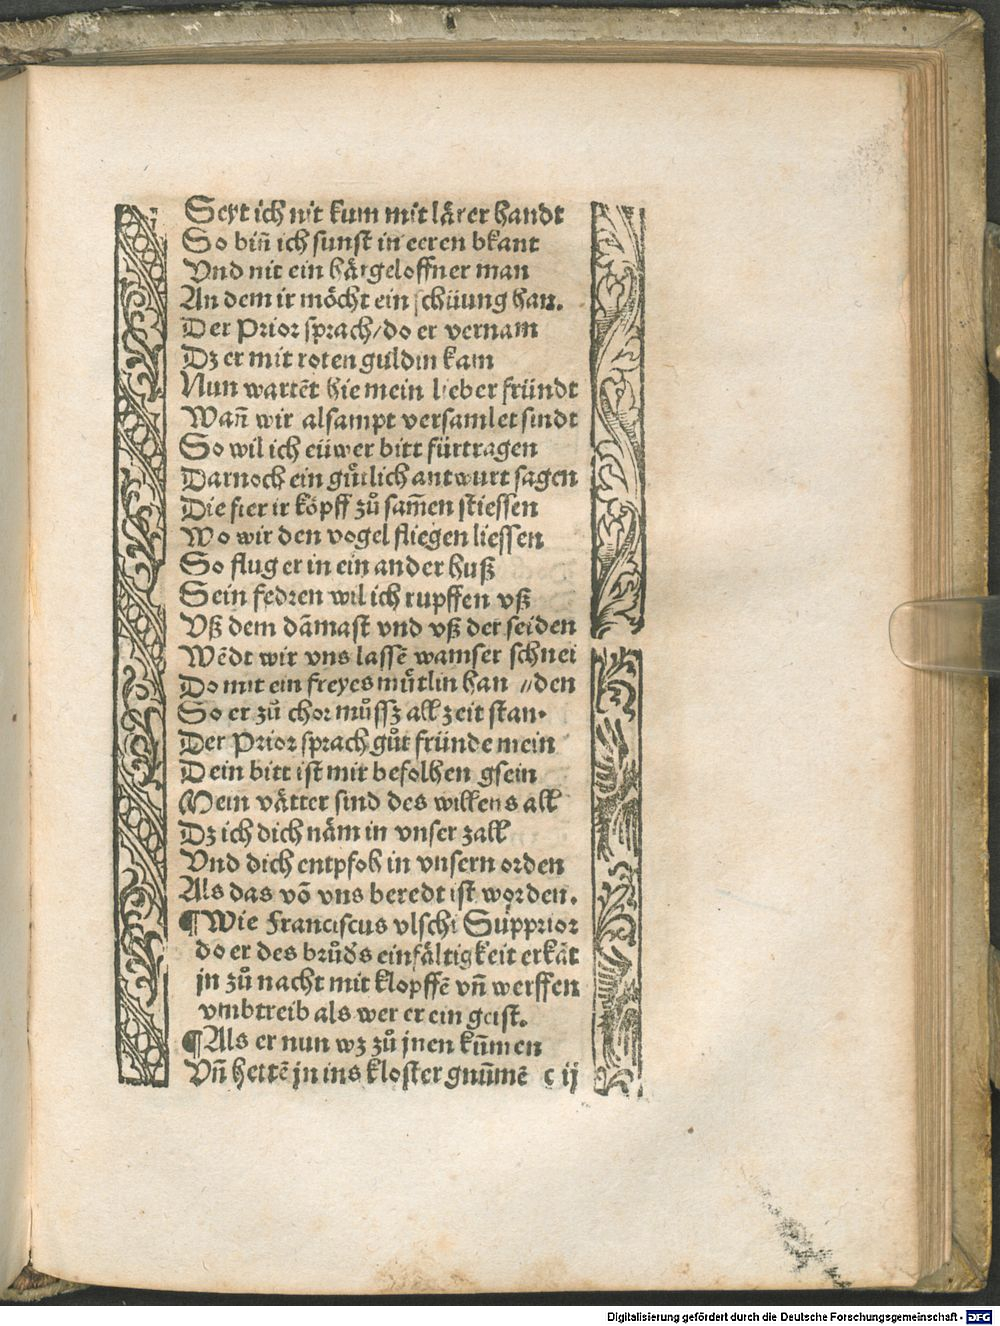 Seyt ich nit kum mit lärer handt
So biñ ich sunst in eeren bkant
Vnd nit ein härgeloffner man
An dem ir möcht ein schüung han.
Der Prior sprach/do er vernam
Dz er mit roten guldin kam
Nun wartēt hie mein lieber fründt
Wañ wir alsampt versamlet sindt
So wil ich eüwer bitt fürtragen
Darnoch ein gůtlich antwurt sagen
Die fier ir köpff zů sam̄en stiessen
Wo wir den vogel fliegen liessen
So flug er in ein ander huß
Sein fedren wil ich rupffen vß
Vß dem dāmast vnd vß der seiden
Wēdt wir vns lassē wamser schnei
Do mit ein freyes můtlin han //den
So er zů chor můssz all zeit stan.
Der Prior sprach gůt fründe mein
Dein bitt ist mir befolhen gsein
Mein vätter sind des willens all
Dz ich dich näm in vnser zall
Vnd dich entpfoh in vnsern orden
Als das vō vns beredt ist worden.
¶Wie Franciscus vlschi Supprior
do er des brůd's einfältigkeit erkāt
jn zů nacht mit klopffē vñ werffen
vmbtreib als wer er ein geist.
¶Als er nun wz zů jnen kūmen
Vñ hettē jn ins kloster gnūmē c ij
Digitalisierung gefördert durch die Deutsche Forschungsgemeinschaft - DFG